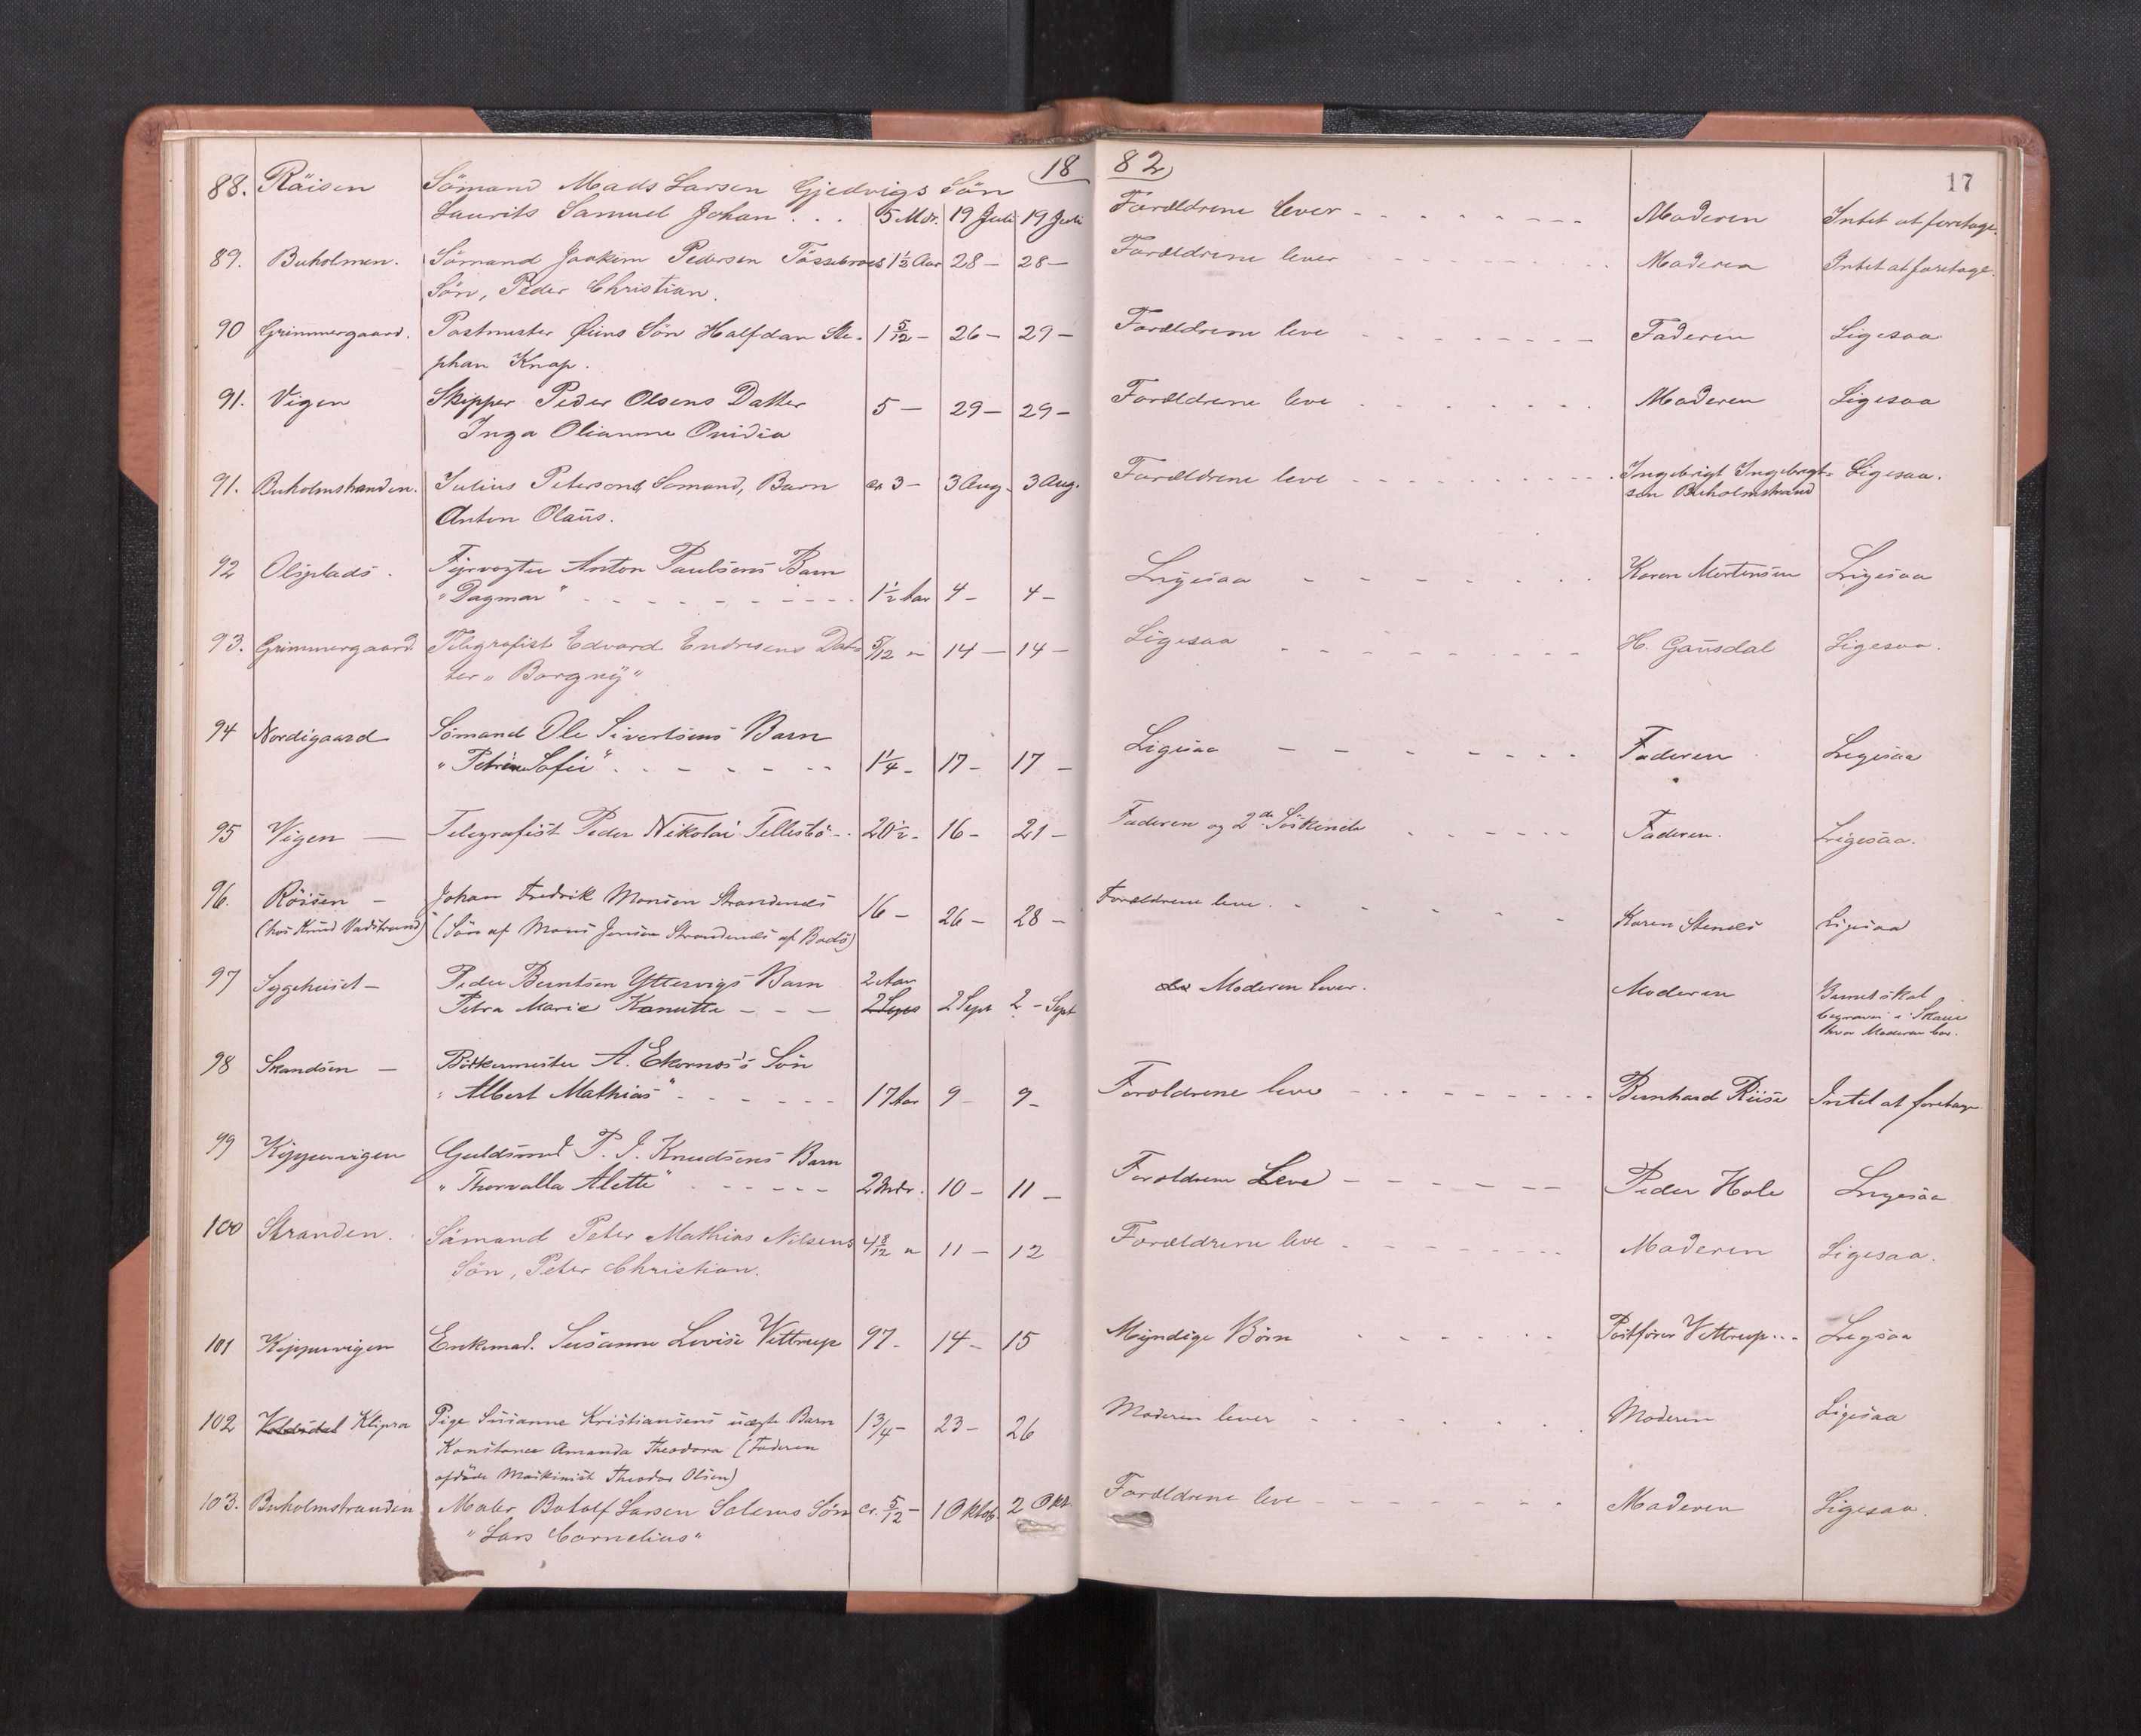 18 82
17
88. Räisen Sömand Mads Larsen Gjedvigs Sön
Laurits Samuel Johan . . . 5 Mdr. 19 Juli 19 Juli Forældrene lever Moderen Intet at foretage.
89. Buholmen. Sömand Joakim Pedersen 1½ Aar 28 – 28 – Forældrene lever Moderen Intet at foretage.
Sön, Peder Christian.
90 Grimmergaard. Postmester Sön Halfdan Ste- 1 5/12 – 26 – 29 – Forældrene leve Faderen Ligesaa
phan Knap.
91. Vigen Skipper Peder Olsens Datter 5 – 29 – 29 – Forældrene leve Moderen Ligesaa
Inga Olianna Ovidia
91. Buholmstranden. Julius Petersens, Sömand, Barn ca 3 – 3 Aug. 3 Aug. Forældrene leve Ingebrigt Ingebrigt- Ligesaa.
Anton Olaus. sen Buholmstrand
92 Olsplads. Fyrvogter Anton Paulsens Barn
"Dagmar" 1½ Aar 4 – 4 – Ligesaa Karen Mortensen Ligesaa
93. Grimmergaard Telegrafist Edvard Endresens Dat- 5/12 " 14 – 14 – Ligesaa H. Gausdal Ligesaa.
ter "Borgny"
94 Nordigaard Sömand Ole Sivertsens Barn
"Petrine Sofie" 1¼ – 17 – 17 – Ligesaa Faderen Ligesaa
95 Vigen – Telegrafist Peder Nikolai Tellesbö 20½ – 16 – 21 – Faderen og 2de Söskende Faderen. Ligesaa.
96. Röisen – Johan Fredrik Monsen Strandenæs 16 – 26 – 28 – Forældrene leve. Karen Stenes Ligesaa
(hos Knud Vadstrand) (Sön af Mons Jensen Strandenæs af Bodö)
97 Sygehuset – Peder Berntsen Yttervigs Barn 2 Aar
Petra Marie Kanutta – – – 2 Sept 2 – Sept Moderen lever. Moderen Barnet skal
begraves i Skaue
hvor Moderen bor.
98 Skandsen – Bödkermester A. Ekornes's Sön
"Albert Mathias" 17 Aar 9 – 9 – Forældrene leve Bernhard Riise Intet at foretage.
99 Kippervigen Guldsmed P. J. Knudsens Barn
"Thorvalla Alette" 2 Mdr. 10 – 11 – Forældrene Leve Peder Hole Ligesaa
100 Stranden. Sömand Peter Mathias Nilsens 4 8/12 " 11 – 12 Forældrene leve Moderen Ligesaa.
Sön, Peter Christian.
101 Kippervigen Enkemad. Susanne Lovise Wettrup 97 – 14 – 15 Myndige Börn Postförer Wettrup Ligesaa
102 Klipra Pige Susanne Kristiansens uægte Barn 1 3/4 – 23 – 26 Moderen lever Moderen Ligesaa
Konstance Amanda Theodora (Faderen
afdöde Maskinist Theodor Olsen)
103. Buholmstranden Maler Botolf Larsen Solems Sön ca. 5/12 – 1 Oktob. 2 Okt. Forældrene leve Moderen Ligesaa.
"Lars Cornelius"